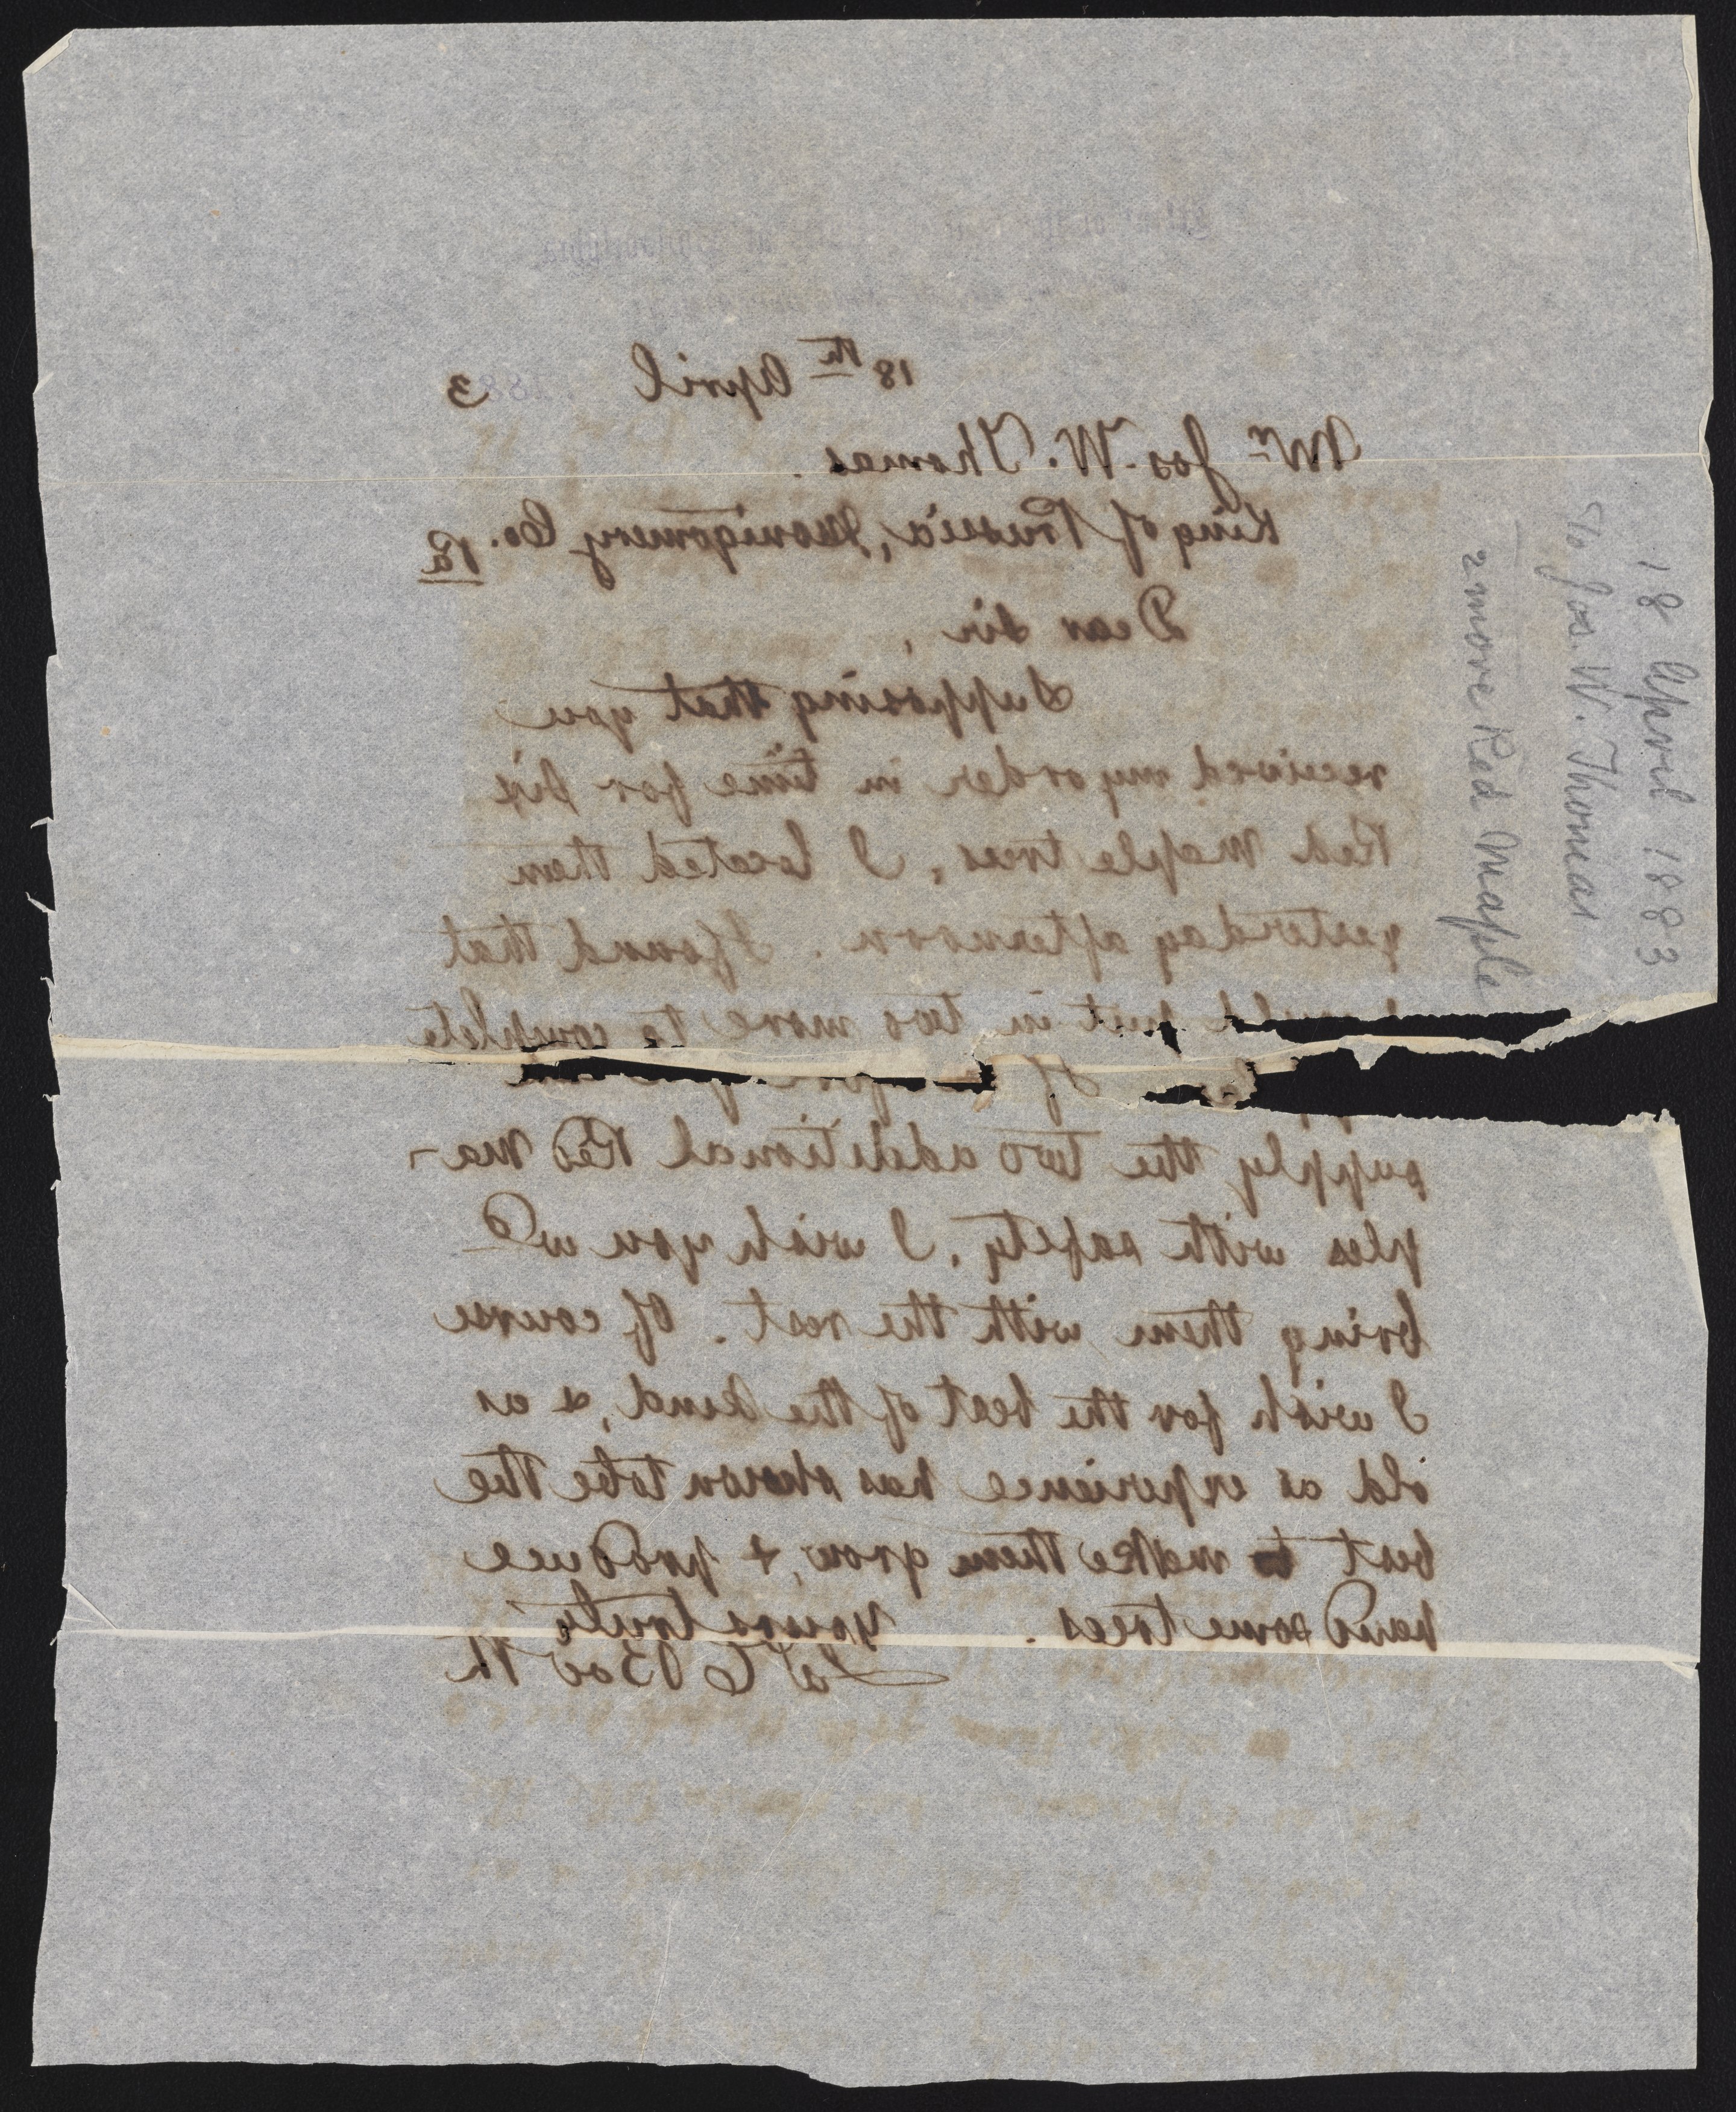 18th April 1883
Mr Jos. W. Thomas.
King of Prussia, Montgomery Co. Pa
Dear Sir,
Supposing that you
received my order in time for six
Red Maple trees, I located them
yesterday afternoon. I found that
put in two more to complete
If
supply the two additional Red Ma-
ples with safety, I wish you wd
bring them with the rest. Of course
I wish for the best of the kind, & as
old as experience has shown to be the
best to make them grow, & produce
handsome trees. Yours truly
18 April 1883
To Jos. W. Thomas
2 more Red Maple